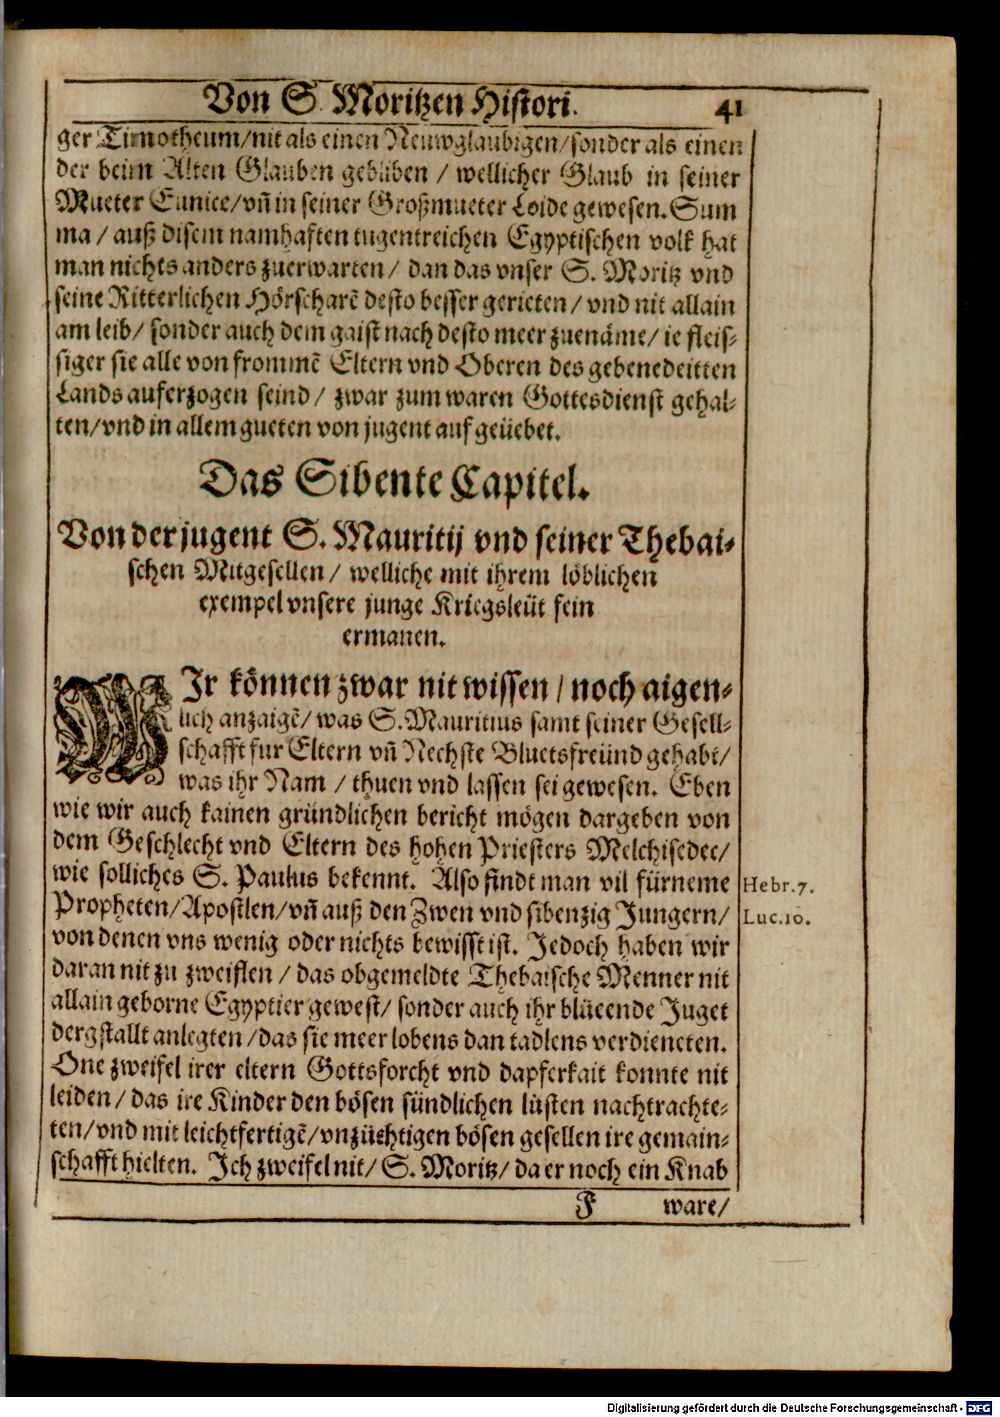 Von S. Moritzen Histori. 41
ger Timotheum/nit als einen Neuwglaubigen/sonder als einen
der beim Alten Glauben gebliben / wellicher Glaub in seiner
Mueter Eunice/vñ in seiner Großmueter Loide gewesen. Sum
ma / auß disem namhaften tugentreichen Egyptischen volk hat
man nichts anders zuerwarten / dan das vnser S. Moritz vnd
seine Ritterlichen Hörscharẽ desto besser gerieten / vnd nit allain
am leib / sonder auch dem gaist nach desto meer zuenäme / ie fleis-
siger sie alle von frommẽ Eltern vnd Oberen des gebenedeitten
Lands auferzogen seind / zwar zum waren Gottesdienst gehal-
ten/vnd in allem gueten von jugent auf geüebet.
Das Sibente Capitel.
Von der jugent S. Mauritij vnd seiner Thebai-
schen Mitgesellen / welliche mit ihrem löblichen
exempel vnsere junge Kriegsleüt fein
ermanen.
WIr können zwar nit wissen / noch aigen-
lich anzaigẽ/ was S. Mauritius samt seiner Gesell-
schafft fur Eltern vñ Nechste Bluetsfreünd gehabt/
was ihr Nam / thuen vnd lassen sei gewesen. Eben
wie wir auch kainen gründlichen bericht mögen dargeben von
dem Geschlecht vnd Eltern des hohen Priesters Melchisedec/
wie solliches S. Paulus bekennt. Also findt man vil fürneme Hebr.7.
Propheten/Apostlen/vñ auß den Zwen vnd sibenzig Jungern/ Luc.10.
von denen vns wenig oder nichts bewisst ist. Jedoch haben wir
daran nit zu zweiflen / das obgemeldte Thebaische Menner nit
allain geborne Egyptier gewest/ sonder auch ihr blüeende Juget
dergstallt anlegten /das sie meer lobens dan tadlens verdieneten.
One zweifel irer eltern Gottsforcht vnd dapferkait konnte nit
leiden / das ire Kinder den bösen sündlichen lüsten nachtrachte-
ten/vnd mit leichtfertigẽ/vnzüchtigen bösen gesellen ire gemain-
schafft hielten. Ich zweifel nit/ S. Moritz/ da er noch ein Knab
F ware/
Digitalisierung gefördert durch die Deutsche Forschungsgemeinschaft - DFG